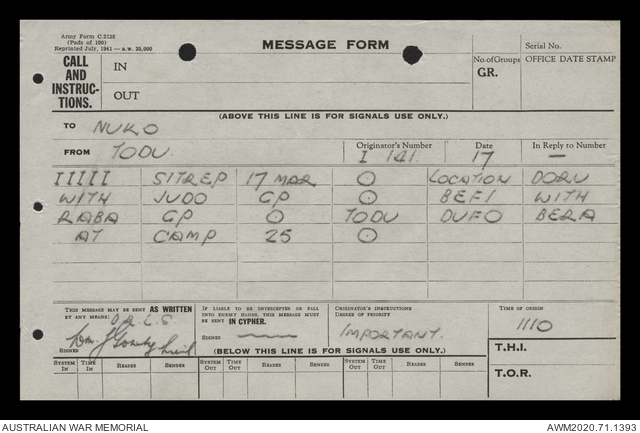 Army Form C.2128
(Pads of 100)
Reprinted July, 1941—A.W. 25,000
MESSAGE FORM
Serial No.
CALL AND INSTRUCTIONS.
IN
OUT
No. of Groups
GR.
OFFICE DATE STAMP
(ABOVE THIS LINE IS FOR SIGNALS USE ONLY.)
TO NUKO
FROM TODU.
Originator's Number
I 141.
Date
17
In Reply to Number
—
IIIII SITREP 17 MAR ⊙ LOCATION DORU
WITH JUDO GP ⊙ BEFI WITH
RABA GP ⊙ TODU DUFO BERA
AT CAMP 25 ⊙
THIS MESSAGE MAY BE SENT AS WRITTEN BY ANY MEANS.
D.R.L.S
SIGNED
IF LIABLE TO BE INTERCEPTED OR FALL INTO ENEMY HANDS, THIS MESSAGE MUST BE SENT IN CYPHER.
SIGNED
ORIGINATOR'S INSTRUCTIONS
DEGREE OF PRIORITY
IMPORTANT.
TIME OF ORIGIN
1110
T.H.I.
T.O.R.
(BELOW THIS LINE IS FOR SIGNALS USE ONLY.)
SYSTEM IN TIME IN READER SENDER SYSTEM OUT TIME OUT READER SENDER SYSTEM OUT TIME OUT READER SENDER
AUSTRALIAN WAR MEMORIAL AWM2020.71.1393